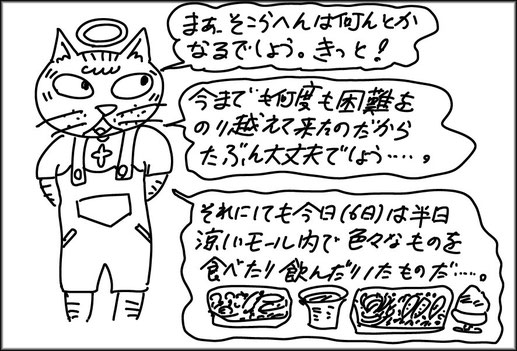 まぁ、そこらへんは何んとか
なるでしょう。きっと！
今までも何度も困難を
のり越えて来たのだから
たぶん大丈夫でしょう‥‥。
それにしても今日(6日)は半日
涼しいモール内で色々なものを
食べたり飲んだりしたものだ‥‥。